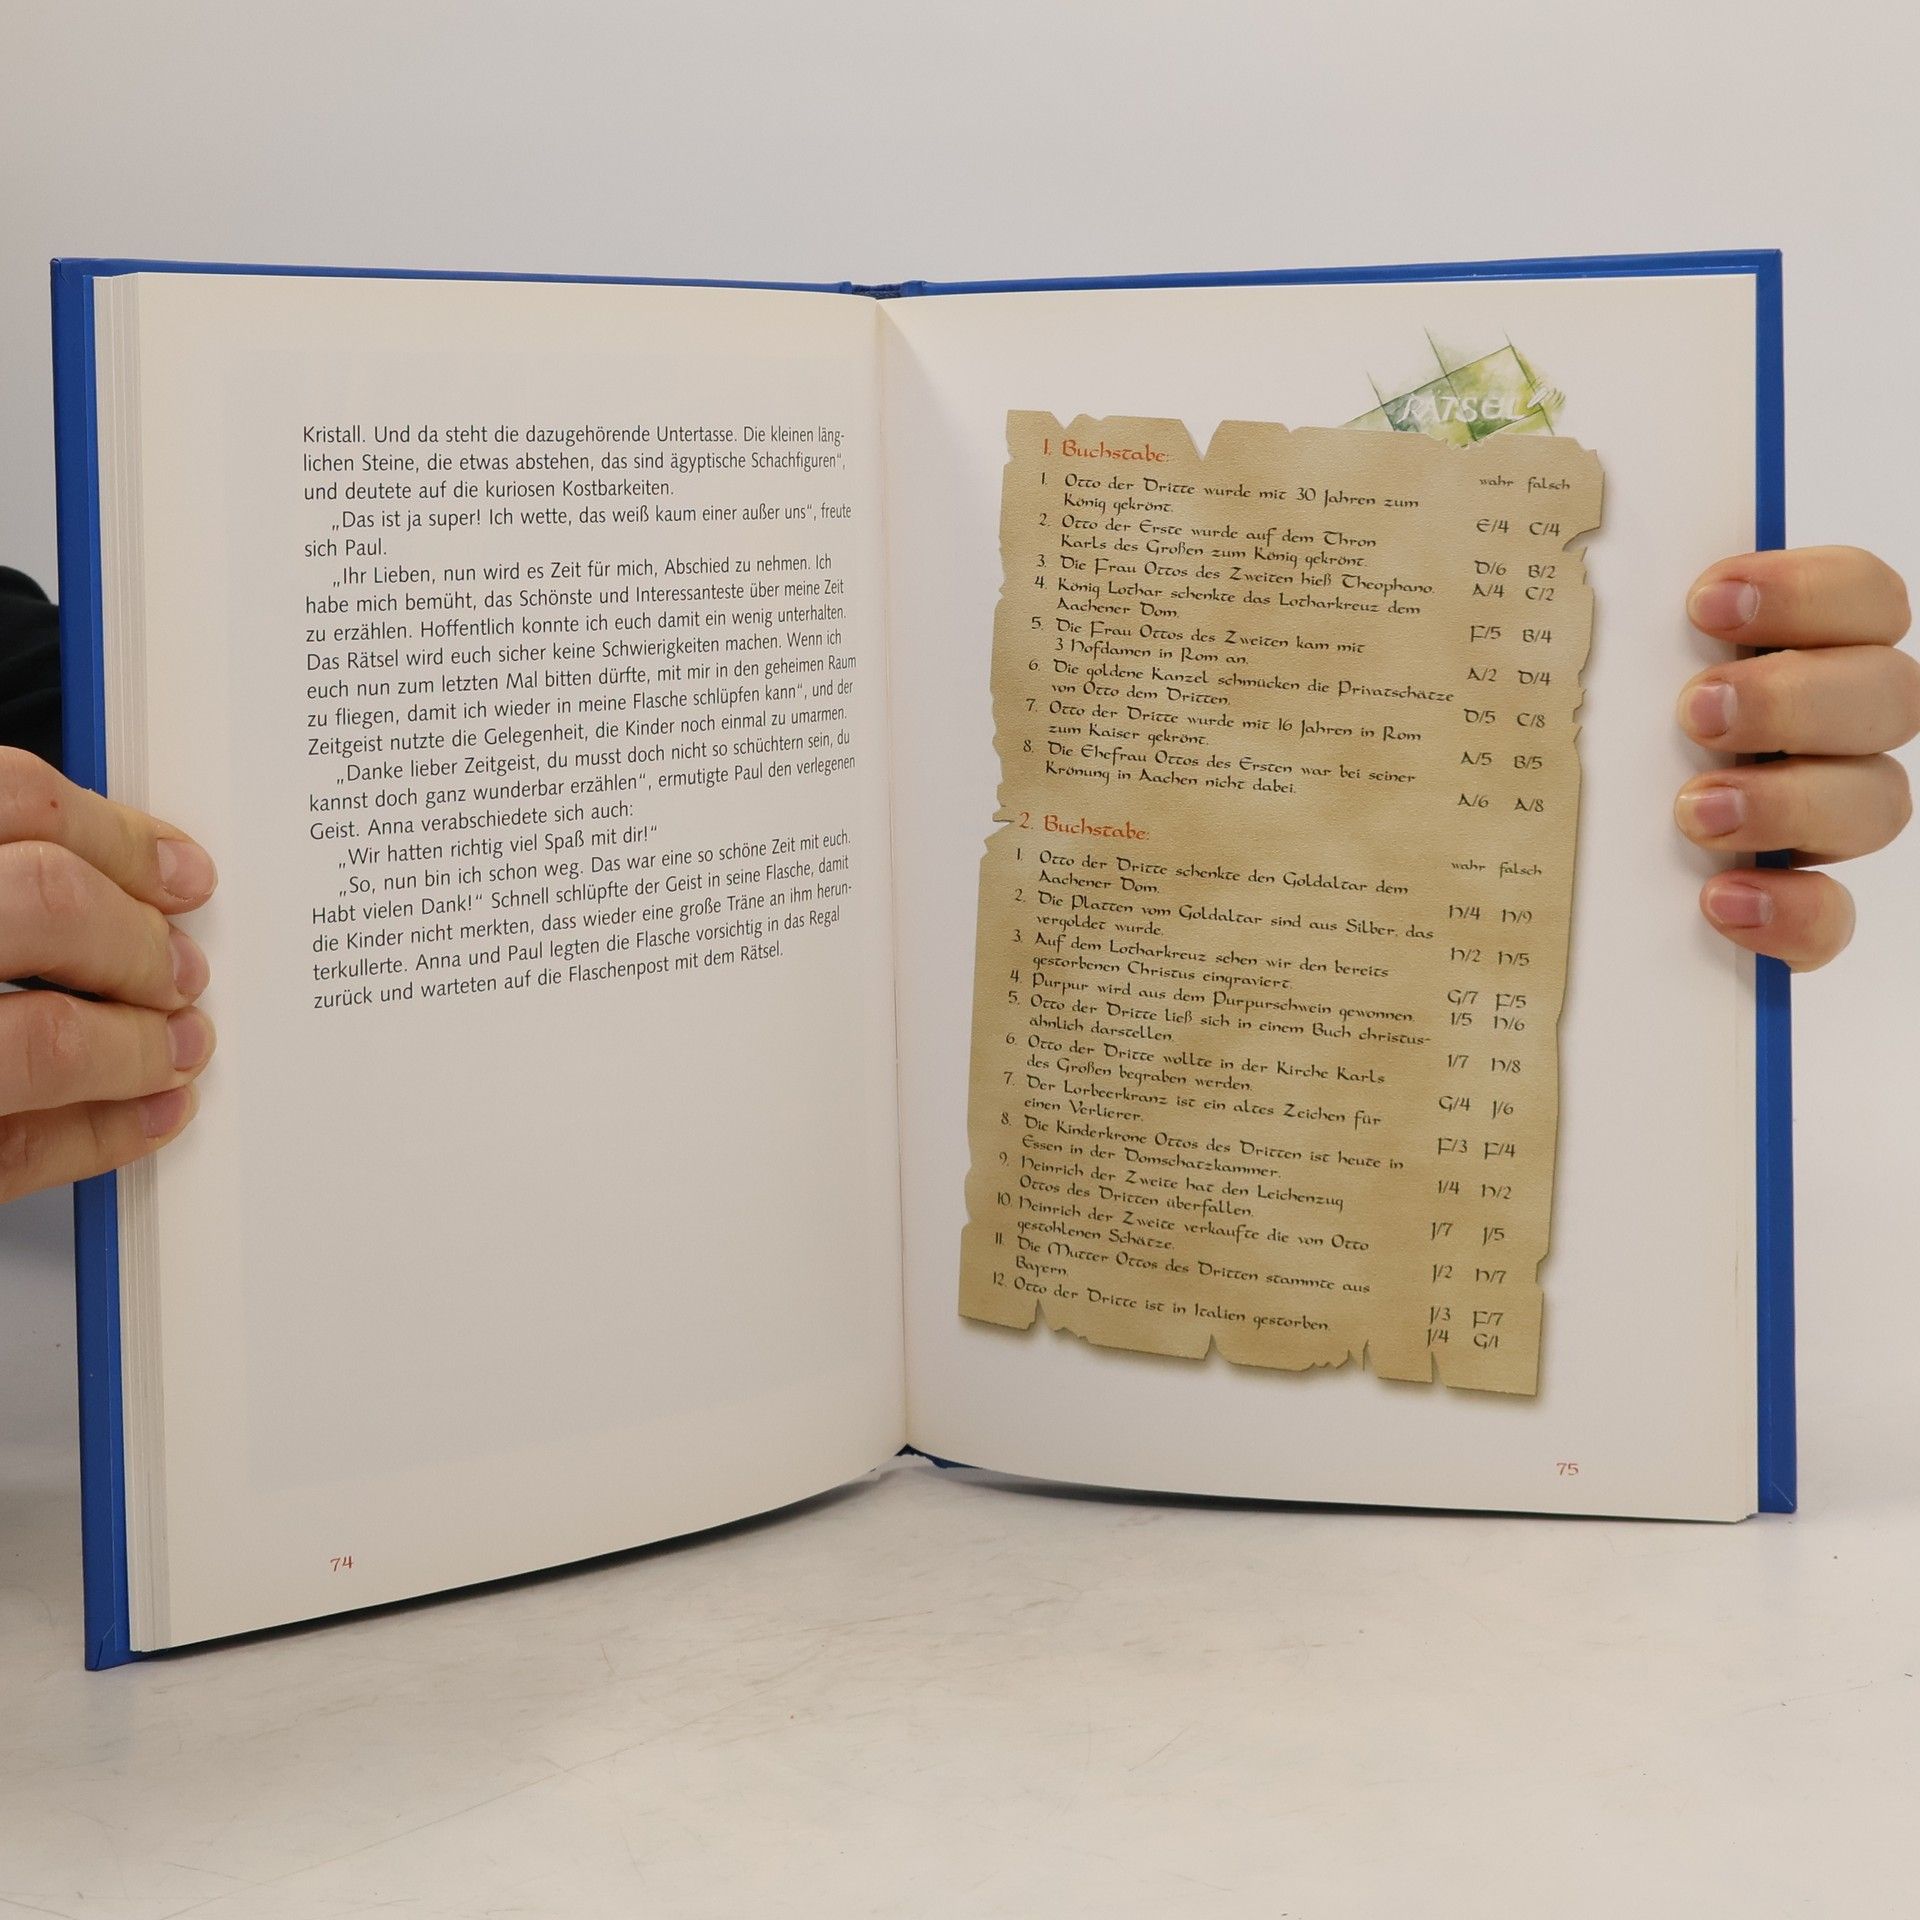 Kristall. Und da steht die dazugehörende Untertasse. Die kleinen läng-
lichen Steine, die etwas abstehen, das sind ägyptische Schachfiguren",
und deutete auf die kuriosen Kostbarkeiten.
„Das ist ja super! Ich wette, das weiß kaum einer außer uns", freute
sich Paul.
„Ihr Lieben, nun wird es Zeit für mich, Abschied zu nehmen. Ich
habe mich bemüht, das Schönste und Interessanteste über meine Zeit
zu erzählen. Hoffentlich konnte ich euch damit ein wenig unterhalten.
Das Rätsel wird euch sicher keine Schwierigkeiten machen. Wenn ich
euch nun zum letzten Mal bitten dürfte, mit mir in den geheimen Raum
zu fliegen, damit ich wieder in meine Flasche schlüpfen kann", und der
Zeitgeist nutzte die Gelegenheit, die Kinder noch einmal zu umarmen.
„Danke lieber Zeitgeist, du musst doch nicht so schüchtern sein, du
kannst doch ganz wunderbar erzählen", ermutigte Paul den verlegenen
Geist. Anna verabschiedete sich auch:
„Wir hatten richtig viel Spaß mit dir!"
„So, nun bin ich schon weg. Das war eine so schöne Zeit mit euch.
Habt vielen Dank!" Schnell schlüpfte der Geist in seine Flasche, damit
die Kinder nicht merkten, dass wieder eine große Träne an ihm herun-
terkullerte. Anna und Paul legten die Flasche vorsichtig in das Regal
zurück und warteten auf die Flaschenpost mit dem Rätsel.
74
RÄTSEL
1. Buchstabe:
wahr falsch
1. Otto der Dritte wurde mit 30 Jahren zum
König gekrönt. E/4 C/4
2. Otto der Erste wurde auf dem Thron
Karls des Großen zum König gekrönt. D/6 B/2
3. Die Frau Ottos des Zweiten hieß Theophano. A/4 C/2
4. König Lothar schenkte das Lotharkreuz dem
Aachener Dom. F/5 B/4
5. Die Frau Ottos des Zweiten kam mit
3 Hofdamen in Rom an. A/2 D/4
6. Die goldene Kanzel schmücken die Privatschätze
von Otto dem Dritten. D/5 C/8
7. Otto der Dritte wurde mit 16 Jahren in Rom
zum Kaiser gekrönt. A/5 B/5
8. Die Ehefrau Ottos des Ersten war bei seiner
Krönung in Aachen nicht dabei. A/6 A/8
2. Buchstabe:
wahr falsch
1. Otto der Dritte schenkte den Goldaltar dem
Aachener Dom. H/4 H/9
2. Die Platten vom Goldaltar sind aus Silber, das
vergoldet wurde. H/2 H/5
3. Auf dem Lotharkreuz sehen wir den bereits
gestorbenen Christus eingraviert. G/7 F/5
4. Purpur wird aus dem Purpurschwein gewonnen. I/5 H/6
5. Otto der Dritte ließ sich in einem Buch christus-
ähnlich darstellen. I/7 H/8
6. Otto der Dritte wollte in der Kirche Karls
des Großen begraben werden. G/4 J/6
7. Der Lorbeerkranz ist ein altes Zeichen für
einen Verlierer. F/3 F/4
8. Die Kinderkrone Ottos des Dritten ist heute in
Essen in der Domschatzkammer. I/4 H/2
9. Heinrich der Zweite hat den Leichenzug
Ottos des Dritten überfallen. J/7 J/5
10. Heinrich der Zweite verkaufte die von Otto
gestohlenen Schätze. J/2 H/7
11. Die Mutter Ottos des Dritten stammte aus
Bayern. J/3 F/7
12. Otto der Dritte ist in Italien gestorben. J/4 G/1
75